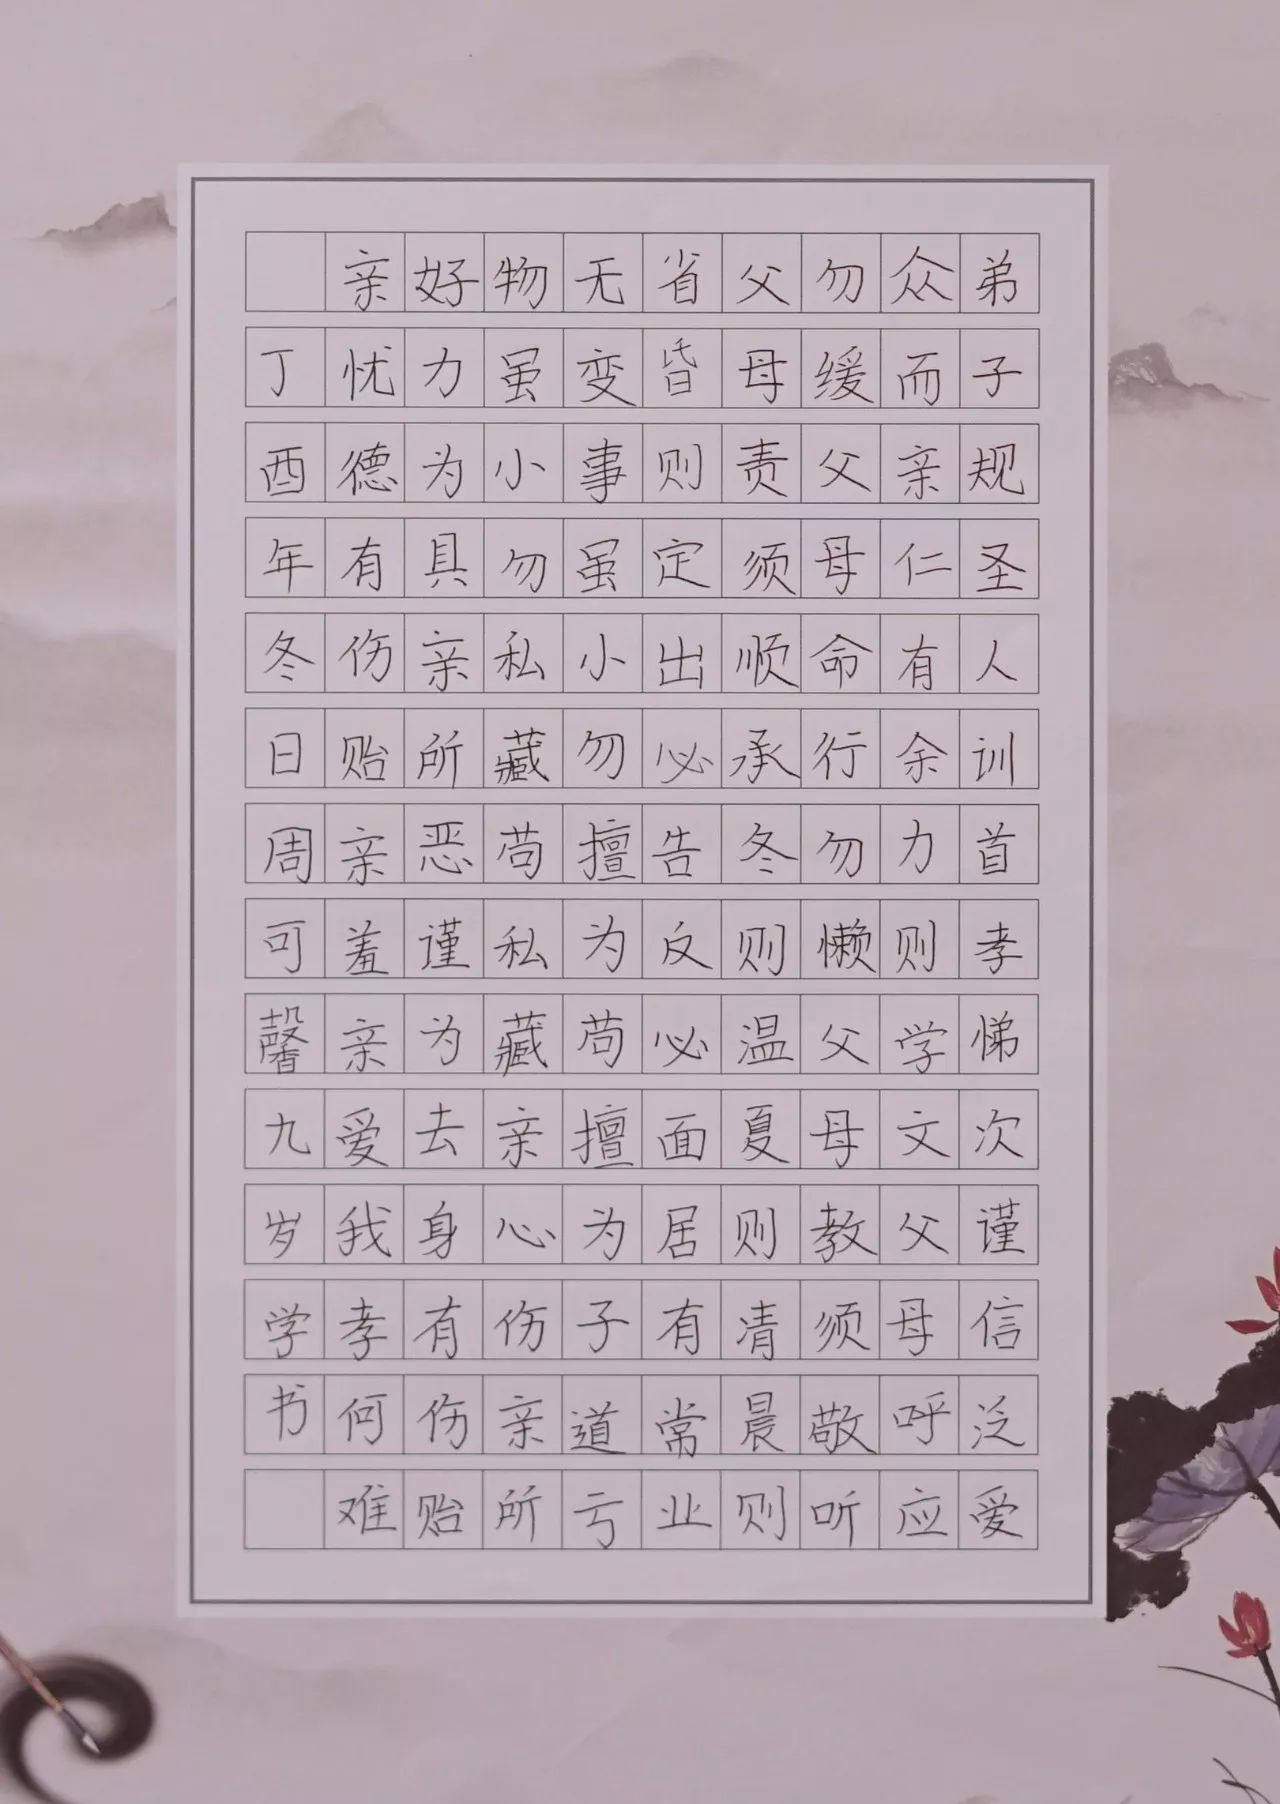 弟子规圣人训首孝悌次谨信泛爱
众而亲仁有余力则学文父母呼应
勿缓父母命行勿懒父母教须敬听
父母责须顺承冬则温夏则凊晨则
省昏则定出必告反必面居有常业
无变事虽小勿擅为苟擅为子道亏
物虽小勿私藏苟私藏亲心伤亲所
好力为具亲所恶谨为去身有伤贻
亲忧德有伤贻亲羞亲爱我孝何难
丁酉年冬日周可馨九岁学书